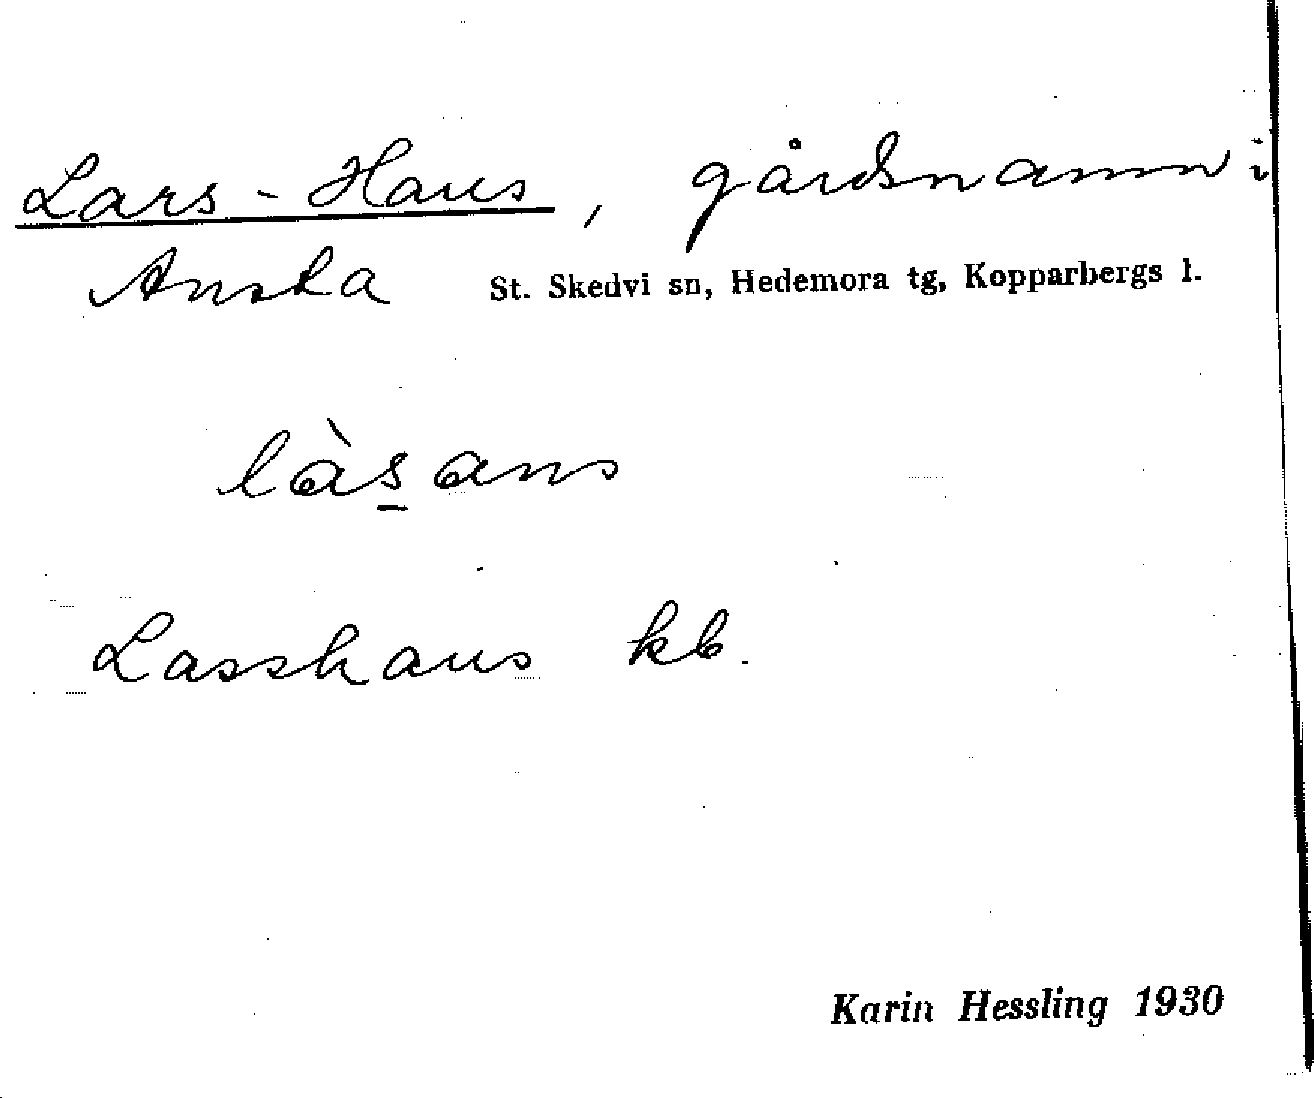 Lars-Hans, gårdsnamn i
Anska St. Skedvi sn, Hedemora tg, Kopparbergs l.
làs̲ans
Lasshans kb.
Karin Hessling 1930